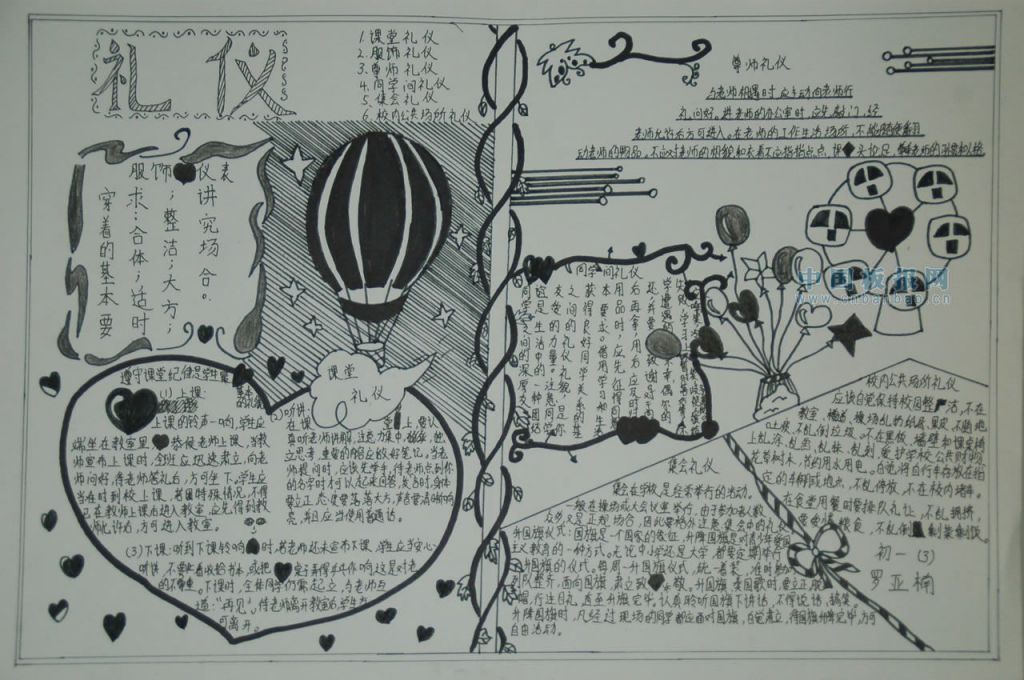 礼仪
1.课堂礼仪
2.服饰礼仪
3.尊师礼仪
4.同学间礼仪
5.集会礼仪
6.校内公共场所礼仪
服饰 仪表
穿着的基本要
求:合体;适时
;整洁;大方;
讲究场合。
课堂
礼仪
遵守课堂纪律是学生
(1)上课:
上课的铃声一响,学生应
端坐在教室里 恭候老师上课,当教
师宣布上课时,全班应迅速肃立,向老
师问好,待老师答礼后,方可坐下。学生应
当准时到校上课,若因特殊情况,不得
已在教师上课后进入教室,应先得到教
师允许后,方可进入教室。
(2)听讲:
在课堂上,要认
真听老师讲解,注意力集中,独立思
立思考,重要的内容应做好笔记。当老
师提问时,应该先举手,待老师点到你
的名字时才可以站起来回答,发言时,身体
要立正,态度要落落大方,声音要清晰响
亮,并且应当使用普通话。
(3)下课:听到下课铃响 时,若老师还未宣布下课,学生应当安心
听讲,不要忙着收拾书本,或把 桌子弄得乒乓作响,这是对老
的不尊重。下课时,全体同学仍需起立,与老师互
道:“再见”。待老师离开教室后,学生方
可离开。
尊师礼仪
与老师相遇时,应主动向老师行
礼问好。进老师的办公室时,应先敲门,经
老师允许后方可进入。在老师的工作生活场所,不能随便翻
动老师的物品。不应对老师的相貌和衣着不应指指点点,
同学间礼仪
同学之间的深厚友
谊是生活中的一种团结
友爱的力量。
之间的礼仪礼貌,是你
获得良好同学关系的
基本要求。
校内公共场所礼仪
应该自觉保持校园整洁,不在
教室、楼道、操场乱扔纸屑、果皮、不随地
吐痰、不乱倒垃圾。不在黑板、墙壁和课桌椅
上乱涂、乱画、乱抹、乱刻,爱护学校公共财物、
花草树木,节约用水用电。自觉将自行车存放在指
定的车棚或地点,不乱停放,不在校内堵车。
在食堂用餐时要排队礼让,不乱拥挤,
要爱惜粮食,不乱倒剩菜剩饭。
集会礼仪
集会在学校是经常举行的活动。
一般在操场或大会议室举行,由于参加者人数
众多,又是正规场合,因此要格外注意集会中的礼仪
升国旗仪式:国旗是一个国家的象征,升降国旗是对青少年爱国
主义教育的一种方式。无论中小学还是大学,都要定期举行
升国旗的仪式。每周一升国旗仪式,统一着装,准时
列队整齐,面向国旗,肃立致敬。升国旗、奏国歌时,要立正,脱
帽,行注目礼,直至升旗完毕。认真聆听国旗下讲话,不得说话、搞笑。
升降国旗时,凡经过现场的同学都应面对国旗,自觉肃立,待国旗升降完毕,方可
自由活动。
初一(3)
罗亚楠
中国板报网
www.cnbanbao.cn